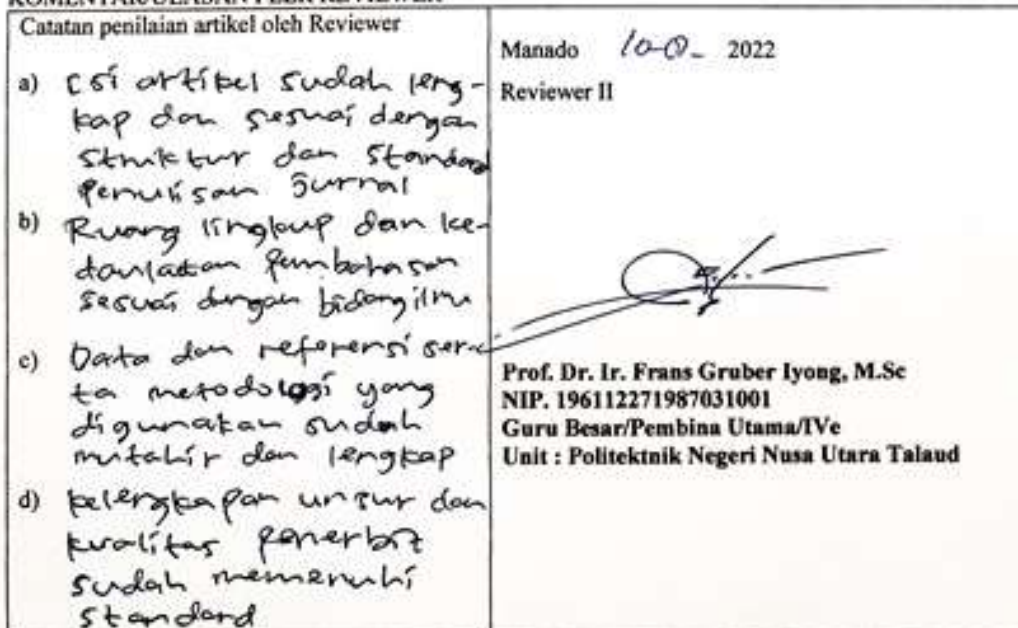 KOMENTAR/ULASAN PEER REVIEWER
Catatan penilaian artikel oleh Reviewer
a) Isi artikel sudah leng-
kap dan sesuai dengan
struktur dan standard
penulisan Jurnal
b) Ruang lingkup dan ke-
dalaman pembahasan
sesuai dengan bidang ilmu
c) Data dan referensi ser-
ta metodologi yang
digunakan sudah
mutahir dan lengkap
d) kelengkapan unsur dan
kualitas penerbit
sudah memenuhi
standard
Manado 2022
Reviewer II
Prof. Dr. Ir. Frans Gruber Iyong, M.Sc
NIP. 196112271987031001
Guru Besar/Pembina Utama/IVe
Unit : Politektnik Negeri Nusa Utara Talaud